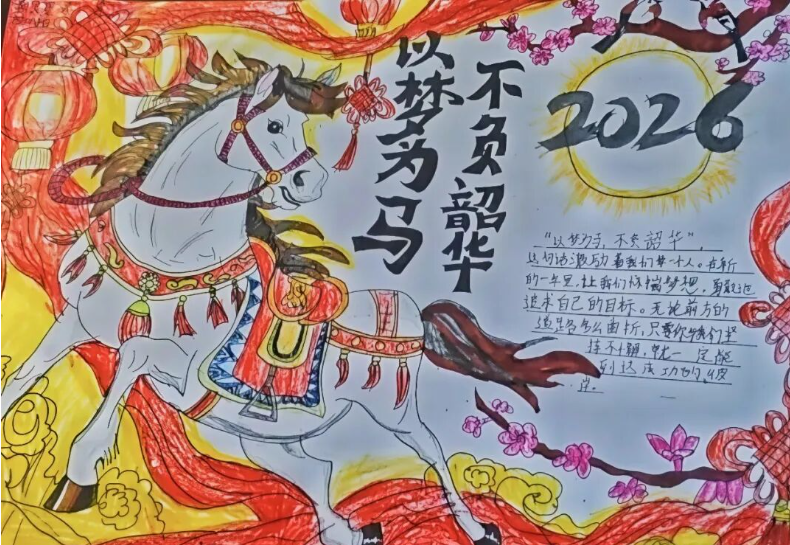 以梦为马
不负韶华
2026
"以梦为马,不负韶华",
这句话激励着我们每一个人。在新
的一年里,让我们怀揣梦想,勇敢地
追求自己的目标。无论前方的
道路多么曲折,只要你我们坚
持不懈,就一定能
到达成功的彼
岸。